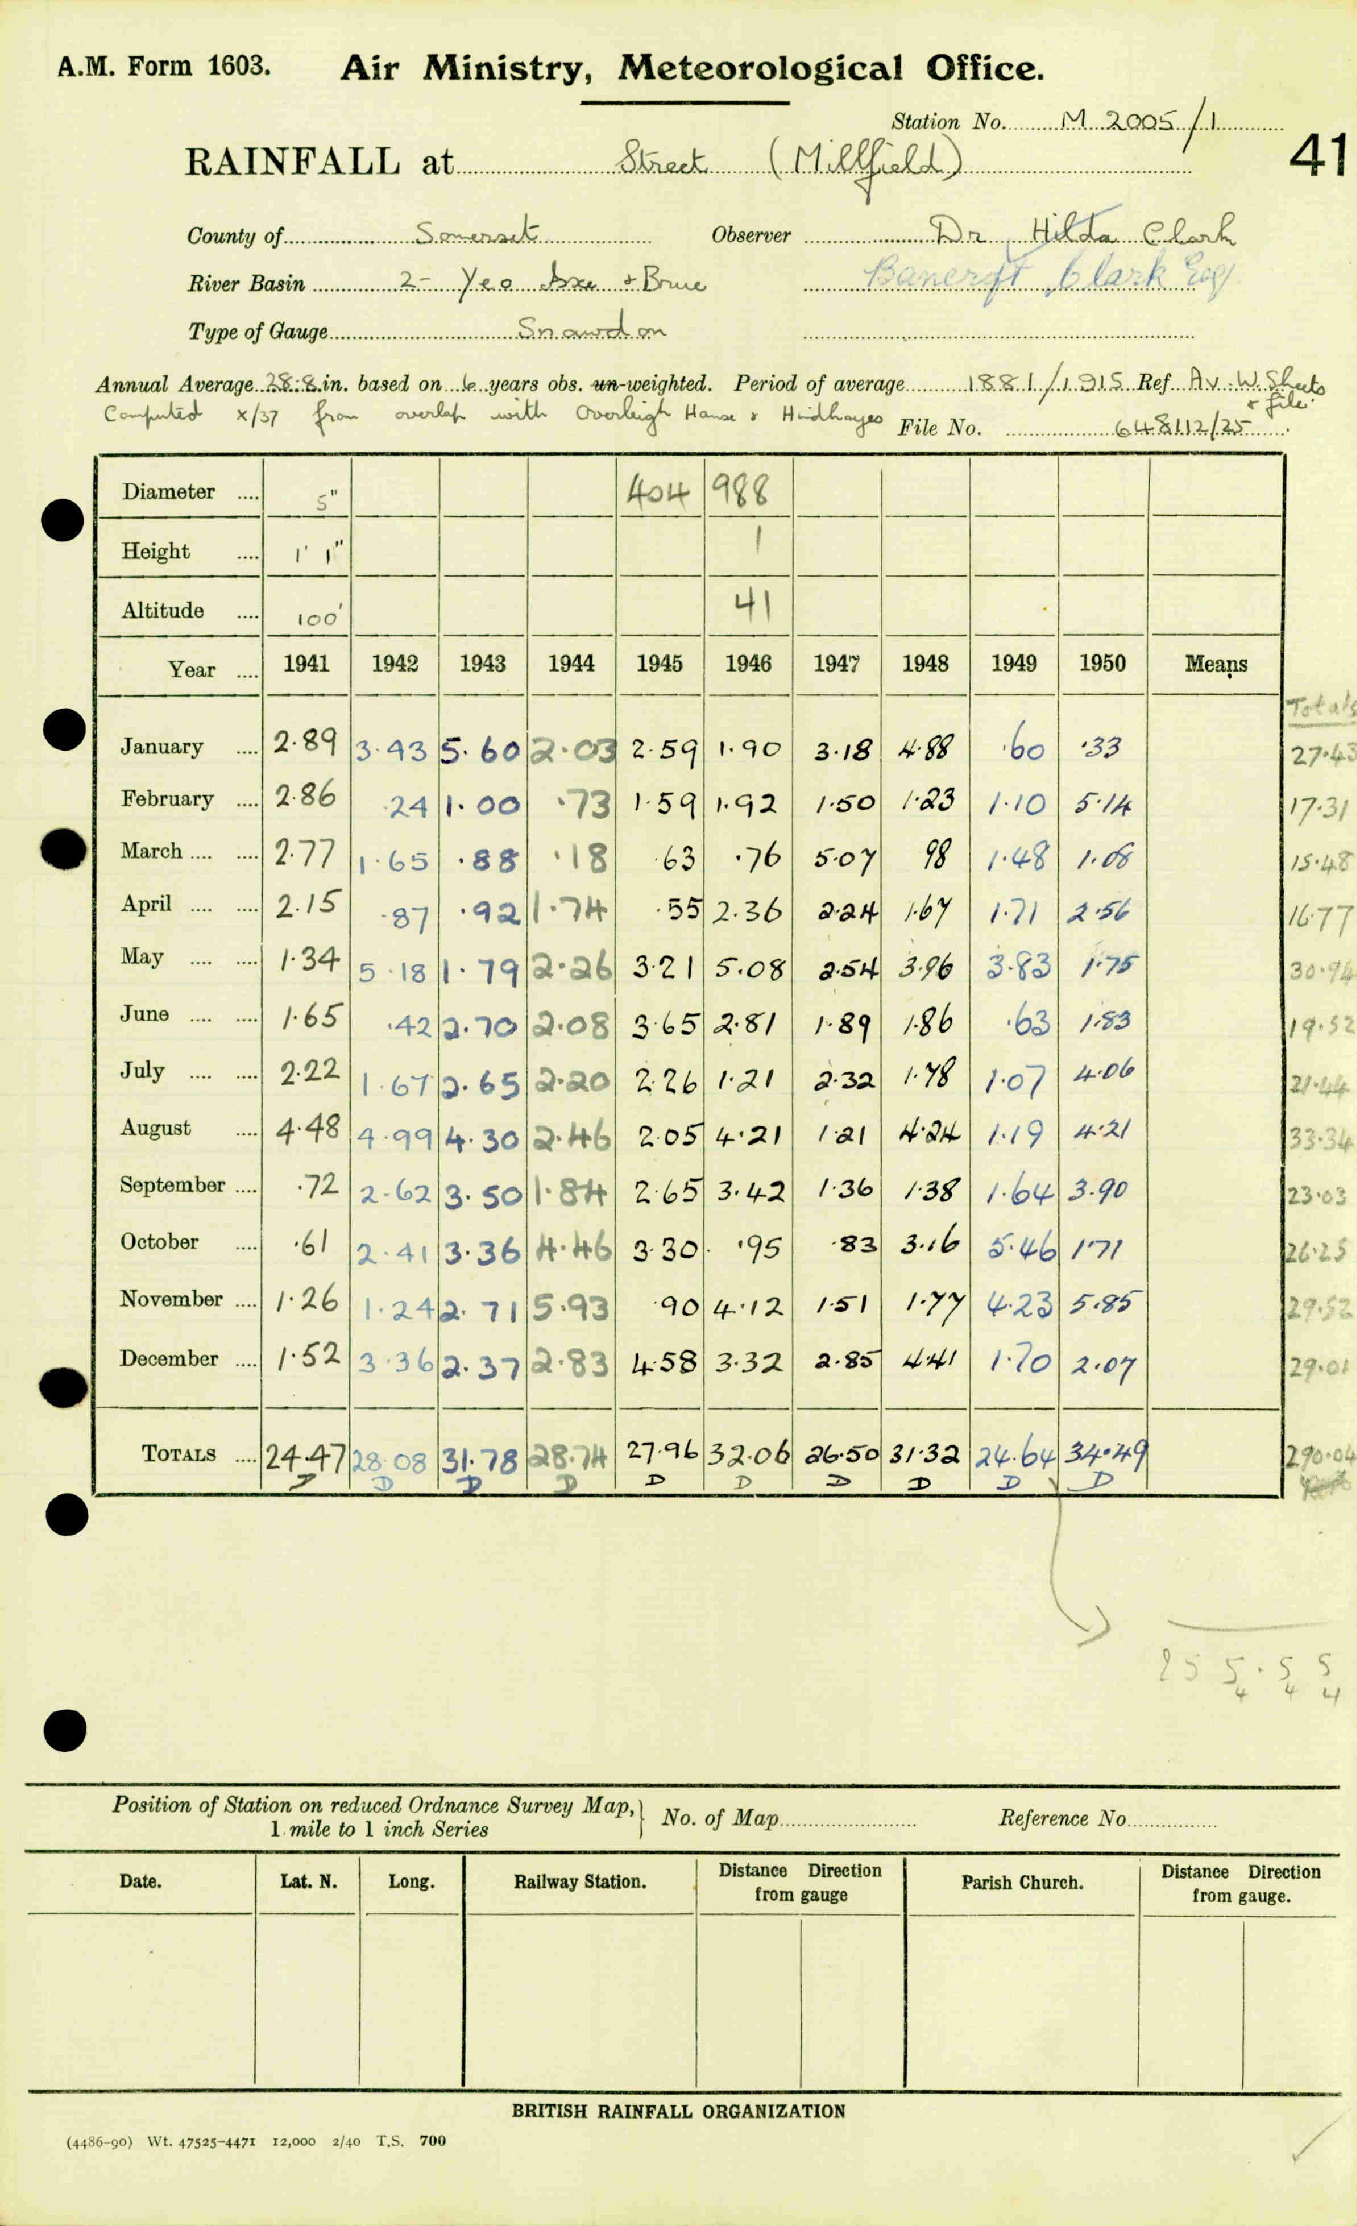 A.M. Form 1603. Air Ministry, Meteorological Office.
Station No. M 2005/1
RAINFALL at Street (Millfield) 41
County of Somerset Observer Dr Hilda Clark
River Basin 2- Yeo Axe + Brue Bancroft Clark Esq
Type of Gauge Snowdon
Annual Average 28.8 in. based on 6 years obs. un-weighted. Period of average 1881/1915 Ref Av. W. Sheets + file.
Computed x/37 from overlap with Overleigh House & Hindhayes File No. 648112/25
Diameter .... 5" 404 988
Height .... 1' 1" 1
Altitude .... 100' 41
Year .... 1941 1942 1943 1944 1945 1946 1947 1948 1949 1950 Means
Totals
January .... 2.89 3.43 5.60 2.03 2.59 1.90 3.18 4.88 .60 .33 27.43
February .... 2.86 .24 1.00 .73 1.59 1.92 1.50 1.23 1.10 5.14 17.31
March .... .... 2.77 1.65 .88 .18 .63 .76 5.07 98 1.48 1.08 15.48
April .... .... 2.15 .87 .92 1.74 .55 2.36 2.24 1.67 1.71 2.56 16.77
May .... .... 1.34 5.18 1.79 2.26 3.21 5.08 2.54 3.96 3.83 1.75 30.94
June .... .... 1.65 .42 2.70 2.08 3.65 2.81 1.89 1.86 .63 1.83 19.52
July .... .... 2.22 1.67 2.65 2.20 2.26 1.21 2.32 1.78 1.07 4.06 21.44
August .... 4.48 4.99 4.30 2.46 2.05 4.21 1.21 4.24 1.19 4.21 33.34
September .... .72 2.62 3.50 1.84 2.65 3.42 1.36 1.38 1.64 3.90 23.03
October .... .61 2.41 3.36 4.46 3.30 .95 .83 3.16 5.46 1.71 26.25
November .... 1.26 1.24 2.71 5.93 .90 4.12 1.51 1.77 4.23 5.85 29.52
December .... 1.52 3.36 2.37 2.83 4.58 3.32 2.85 4.41 1.70 2.07 29.01
TOTALS .... 24.47 28.08 31.78 28.74 27.96 32.06 26.50 31.32 24.64 34.49 290.04
D D D D D D D D D D
25 5.5 5
4 4 4
Position of Station on reduced Ordnance Survey Map, No. of Map Reference No.
1 mile to 1 inch Series
Date. Lat. N. Long. Railway Station. Distance Direction from gauge Parish Church. Distance Direction from gauge.
BRITISH RAINFALL ORGANIZATION
(4486-90) Wt. 47525-4471 12,000 2/40 T.S. 700